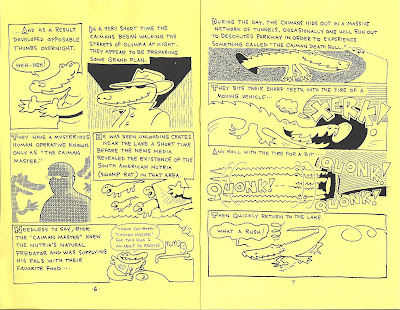 ...AND AS A RESULT
DEVELOPED OPPOSABLE
THUMBS OVERNIGHT.
HEH-HEH!
IN A VERY SHORT TIME THE
CAIMANS BEGAN WALKING THE
STREETS OF OLYMPIA AT NIGHT.
THEY APPEAR TO BE PREPARING
SOME GRAND PLAN.
THEY HAVE A MYSTERIOUS
HUMAN OPERATIVE KNOWN
ONLY AS "THE CAIMAN
MASTER."
HE WAS SEEN UNLOADING CRATES
NEAR THE LAKE A SHORT TIME
BEFORE THE NEWS MEDIA
REVEALED THE EXISTENCE OF THE
SOUTH AMERICAN NUTRIA
(SWAMP RAT) IN THAT AREA.
NEEDLESS TO SAY, ROCK-
THE "CAIMAN MASTER" KNEW
THE NUTRIA'S NATURAL
PREDATOR AND WAS SUPPLYING
HIS PALS WITH THEIR
FAVORITE FOOD...
THANK YOU
"CAIMAN MASTER"
FOR THIS
I
AM ABOUT TO RECEIVE
6
DURING THE DAY, THE CAIMANS HIDE OUT IN A MASSIVE
NETWORK OF TUNNELS. OCCASIONALLY ONE WILL RUN OUT
TO DESCHUTES PARKWAY IN ORDER TO EXPERIENCE
SOMETHING CALLED "THE CAIMAN DEATH ROLL."
THEY BITE THEIR SHORT TEETH INTO THE TIRE OF A
MOVING VEHICLE...
AND ROLL WITH THE TIRE FOR A BIT.
QUONK!
QUONK!
QUONK!
THEN QUICKLY RETURN TO THE LAKE.
WHAT A RUSH!
7